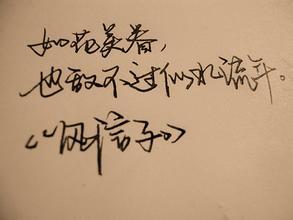 如花美眷,
也敌不过似水流年。